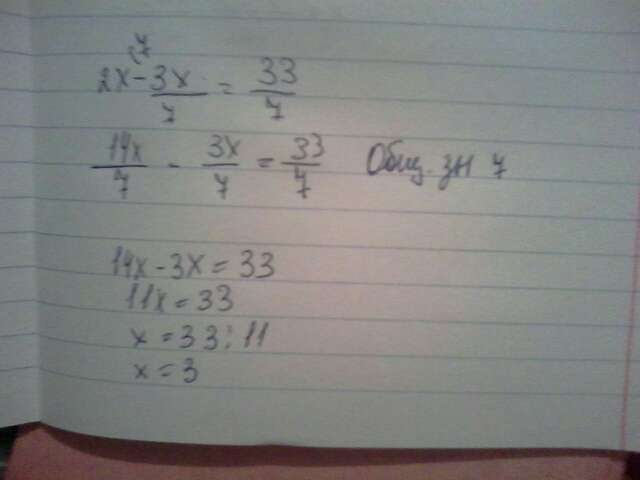 7
2x - 3x/7 = 33/7
14x/7 - 3x/7 = 33/7 Общ. зн 7
14x - 3x = 33
11x = 33
x = 33 : 11
x = 3